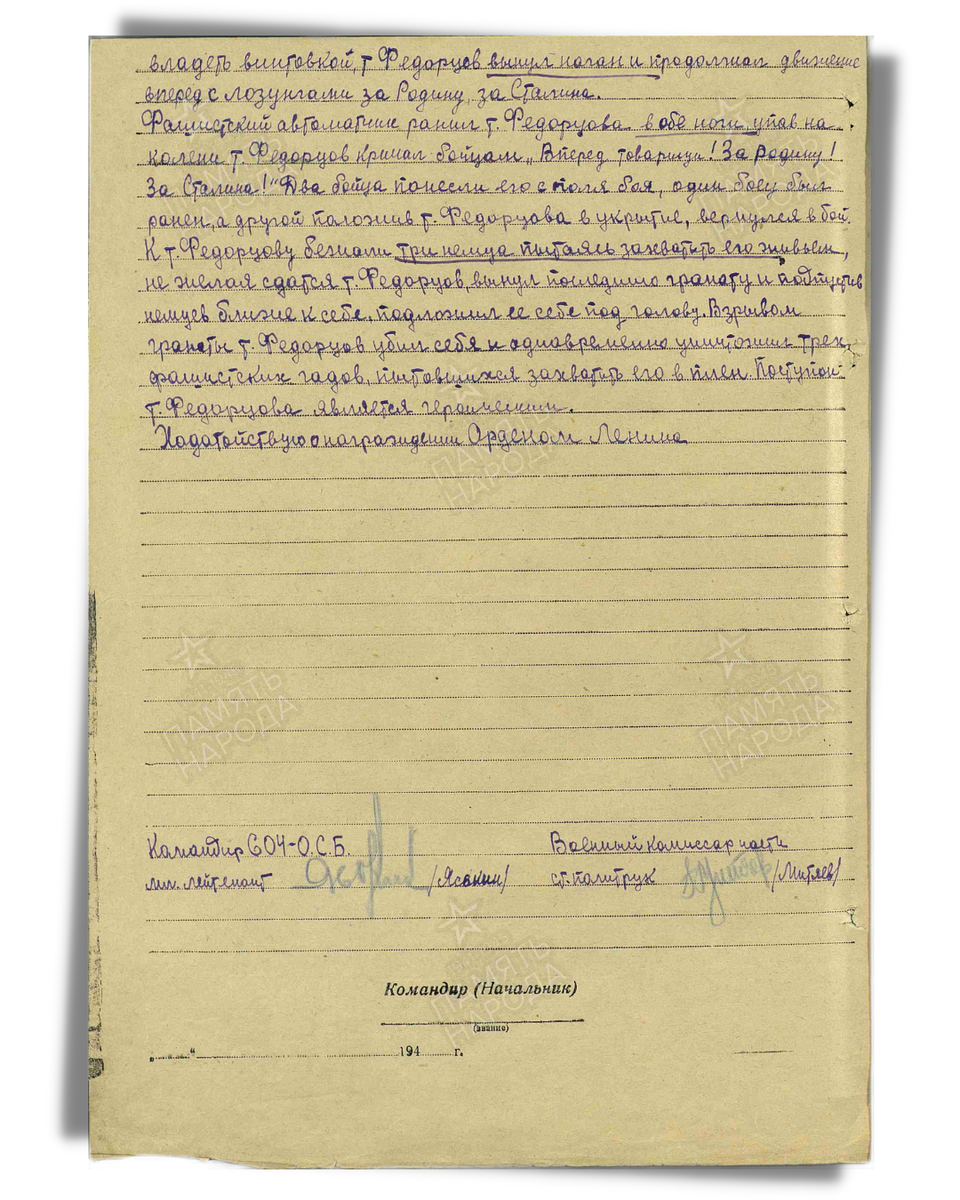 владеть винтовкой, т Федорцов вынул наган и продолжал движение
вперед с лозунгами за Родину, за Сталина.
Фашистский автоматчик ранил т. Федорцова в обе ноги, упав на
колени т. Федорцов кричал бойцам „Вперед товарищи! За Родину!
За Сталина!" Два бойца понесли его с поля боя, один боец был
ранен, а другой положив т. Федорцова в укрытие, вернулся в бой.
К т. Федорцову бежали три немца пытаясь захватить его живьем,
не желая сдатся т. Федорцов, вынул последнюю гранату и подпустив
немцев ближе к себе, подложил ее себе под голову. Взрывом
гранаты т. Федорцов убил себя и одновременно уничтожил трех
фашистских гадов, пытовшихся захватить его в плен. Поступок
т. Федорцова является героическим.
Ходатойствую о награждении Орденом Ленина
Командир 604-О.С.Б. Военный комиссар части
мл. лейтенант /Ясакин/ ст. политрук /Митяев/
Командир (Начальник)
(звание)
„ “ 194 г.
ПАМЯТЬ
НАРОДА
ПАМЯТЬ
НАРОДА
ПАМЯТЬ
НАРОДА
ПАМЯТЬ
НАРОДА